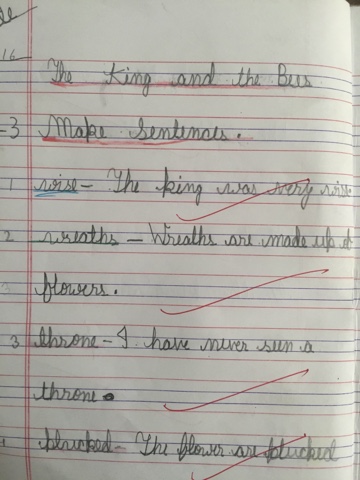 16
The King and the Bees
3 Make sentences.
1 wise - The king was very wise
2 wreaths - Wreaths are made up of
flowers.
3 throne - I have never seen a
throne.
plucked - The flower are plucked